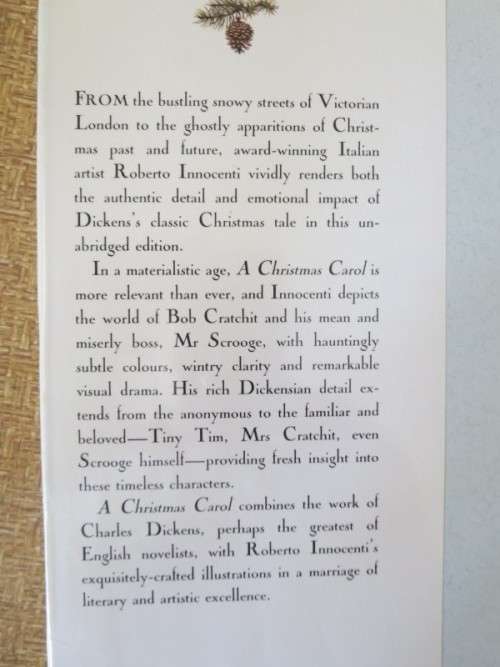 FROM the bustling snowy streets of Victorian
London to the ghostly apparitions of Christ-
mas past and future, award-winning Italian
artist Roberto Innocenti vividly renders both
the authentic detail and emotional impact of
Dickens's classic Christmas tale in this un-
abridged edition.
In a materialistic age, A Christmas Carol is
more relevant than ever, and Innocenti depicts
the world of Bob Cratchit and his mean and
miserly boss, Mr Scrooge, with hauntingly
subtle colours, wintry clarity and remarkable
visual drama. His rich Dickensian detail ex-
tends from the anonymous to the familiar and
beloved—Tiny Tim, Mrs Cratchit, even
Scrooge himself—providing fresh insight into
these timeless characters.
A Christmas Carol combines the work of
Charles Dickens, perhaps the greatest of
English novelists, with Roberto Innocenti's
exquisitely-crafted illustrations in a marriage of
literary and artistic excellence.